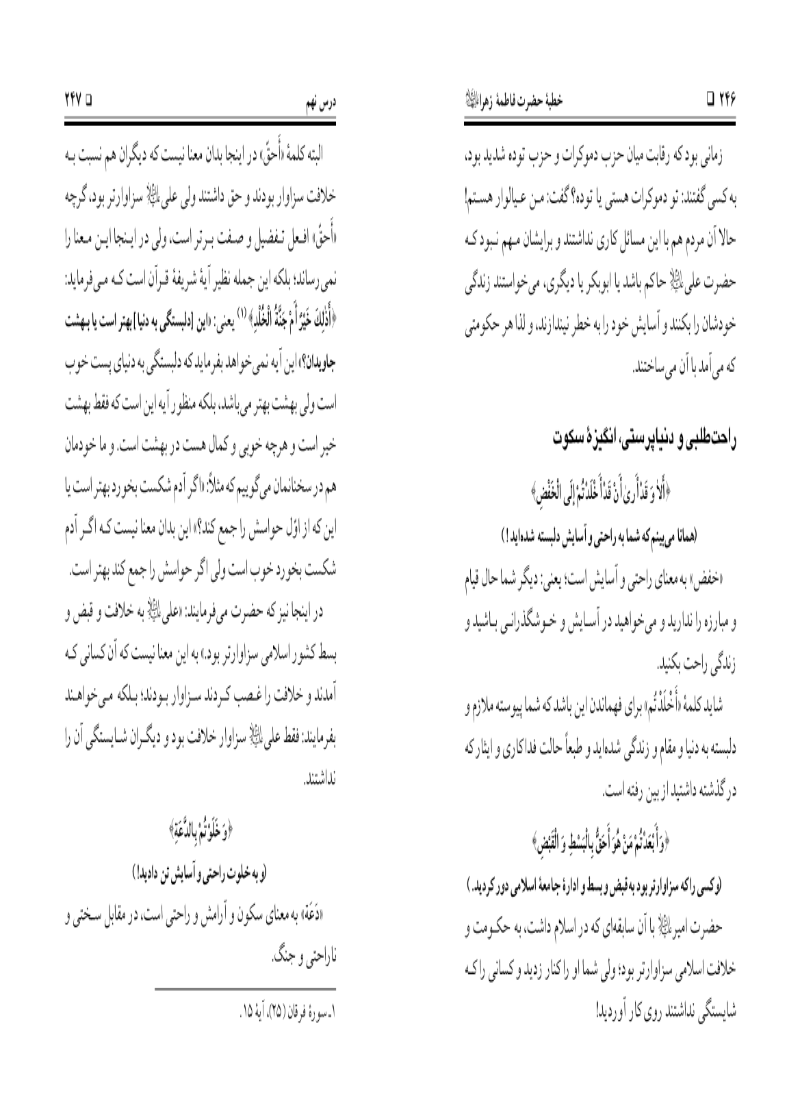 ۲۴۶ ❑ خطبهٔ حضرت فاطمهٔ زهرا علیها‌السلام
زمانی بود که رقابت میان حزب دموکرات و حزب توده شدید بود،
به کسی گفتند: تو دموکرات هستی یا توده؟ گفت: من عیالوار هستم!
حالا آن مردم هم با این مسائل کاری نداشتند و برایشان مهم نبود که
حضرت علی علیه‌السلام حاکم باشد یا ابوبکر یا دیگری، می‌خواستند زندگی
خودشان را بکنند و آسایش خود را به خطر نیندازند، و لذا هر حکومتی
که می‌آمد با آن می‌ساختند.
راحت‌طلبی و دنیاپرستی، انگیزهٔ سکوت
﴿أَلاٰ وَ قَدْ أَرىٰ أَنْ قَدْ أَخْلَدْتُمْ إِلَى الْخَفْضِ﴾
(همانا می‌بینم که شما به راحتی و آسایش دلبسته شده‌اید!)
«خفض» به معنای راحتی و آسایش است؛ یعنی: دیگر شما حال قیام
و مبارزه را ندارید و می‌خواهید در آسایش و خوشگذرانی باشید و
زندگی راحت بکنید.
شاید کلمهٔ «أَخْلَدْتُم» برای فهماندن این باشد که شما پیوسته ملازم و
دلبسته به دنیا و مقام و زندگی شده‌اید و طبعاً حالت فداکاری و ایثار که
در گذشته داشتید از بین رفته است.
﴿وَ أَبْعَدْتُمْ مَنْ هُوَ أَحَقُّ بِالْبَسْطِ وَ الْقَبْضِ﴾
(و کسی را که سزاوارتر بود به قبض و بسط و ادارهٔ جامعهٔ اسلامی دور کردید.)
حضرت امیر علیه‌السلام با آن سابقه‌ای که در اسلام داشت، به حکومت و
خلافت اسلامی سزاوارتر بود؛ ولی شما او را کنار زدید و کسانی را که
شایستگی نداشتند روی کار آوردید!
درس نهم ❑ ۲۴۷
البته کلمهٔ «أَحقّ» در اینجا بدان معنا نیست که دیگران هم نسبت به
خلافت سزاوار بودند و حق داشتند ولی علی علیه‌السلام سزاوارتر بود، گرچه
«أَحقّ» افعل تفضیل و صفت برتر است، ولی در اینجا این معنا را
نمی‌رساند؛ بلکه این جمله نظیر آیهٔ شریفهٔ قرآن است که می‌فرماید:
﴿أَذٰلِكَ خَيْرٌ أَمْ جَنَّةُ الْخُلْدِ﴾ (۱) یعنی: «این [دلبستگی به دنیا] بهتر است یا بهشت
جاویدان؟» این آیه نمی‌خواهد بفرماید که دلبستگی به دنیای پست خوب
است ولی بهشت بهتر می‌باشد، بلکه منظور آیه این است که فقط بهشت
خیر است و هرچه خوبی و کمال هست در بهشت است. و ما خودمان
هم در سخنانمان می‌گوییم که مثلاً: «اگر آدم شکست بخورد بهتر است یا
این که از اوّل حواسش را جمع کند؟» این بدان معنا نیست که اگر آدم
شکست بخورد خوب است ولی اگر حواسش را جمع کند بهتر است.
در اینجا نیز که حضرت می‌فرمایند: «علی علیه‌السلام به خلافت و قبض و
بسط کشور اسلامی سزاوارتر بود.» به این معنا نیست که آن کسانی که
آمدند و خلافت را غصب کردند سزاوار بودند؛ بلکه می‌خواهند
بفرمایند: فقط علی علیه‌السلام سزاوار خلافت بود و دیگران شایستگی آن را
نداشتند.
﴿وَ خَلَوْتُمْ بِالدَّعَةِ﴾
(و به خلوت راحتی و آسایش تن دادید!)
«دَعَة» به معنای سکون و آرامش و راحتی است، در مقابل سختی و
ناراحتی و جنگ.
۱ـ سورهٔ فرقان (۲۵)، آیهٔ ۱۵.